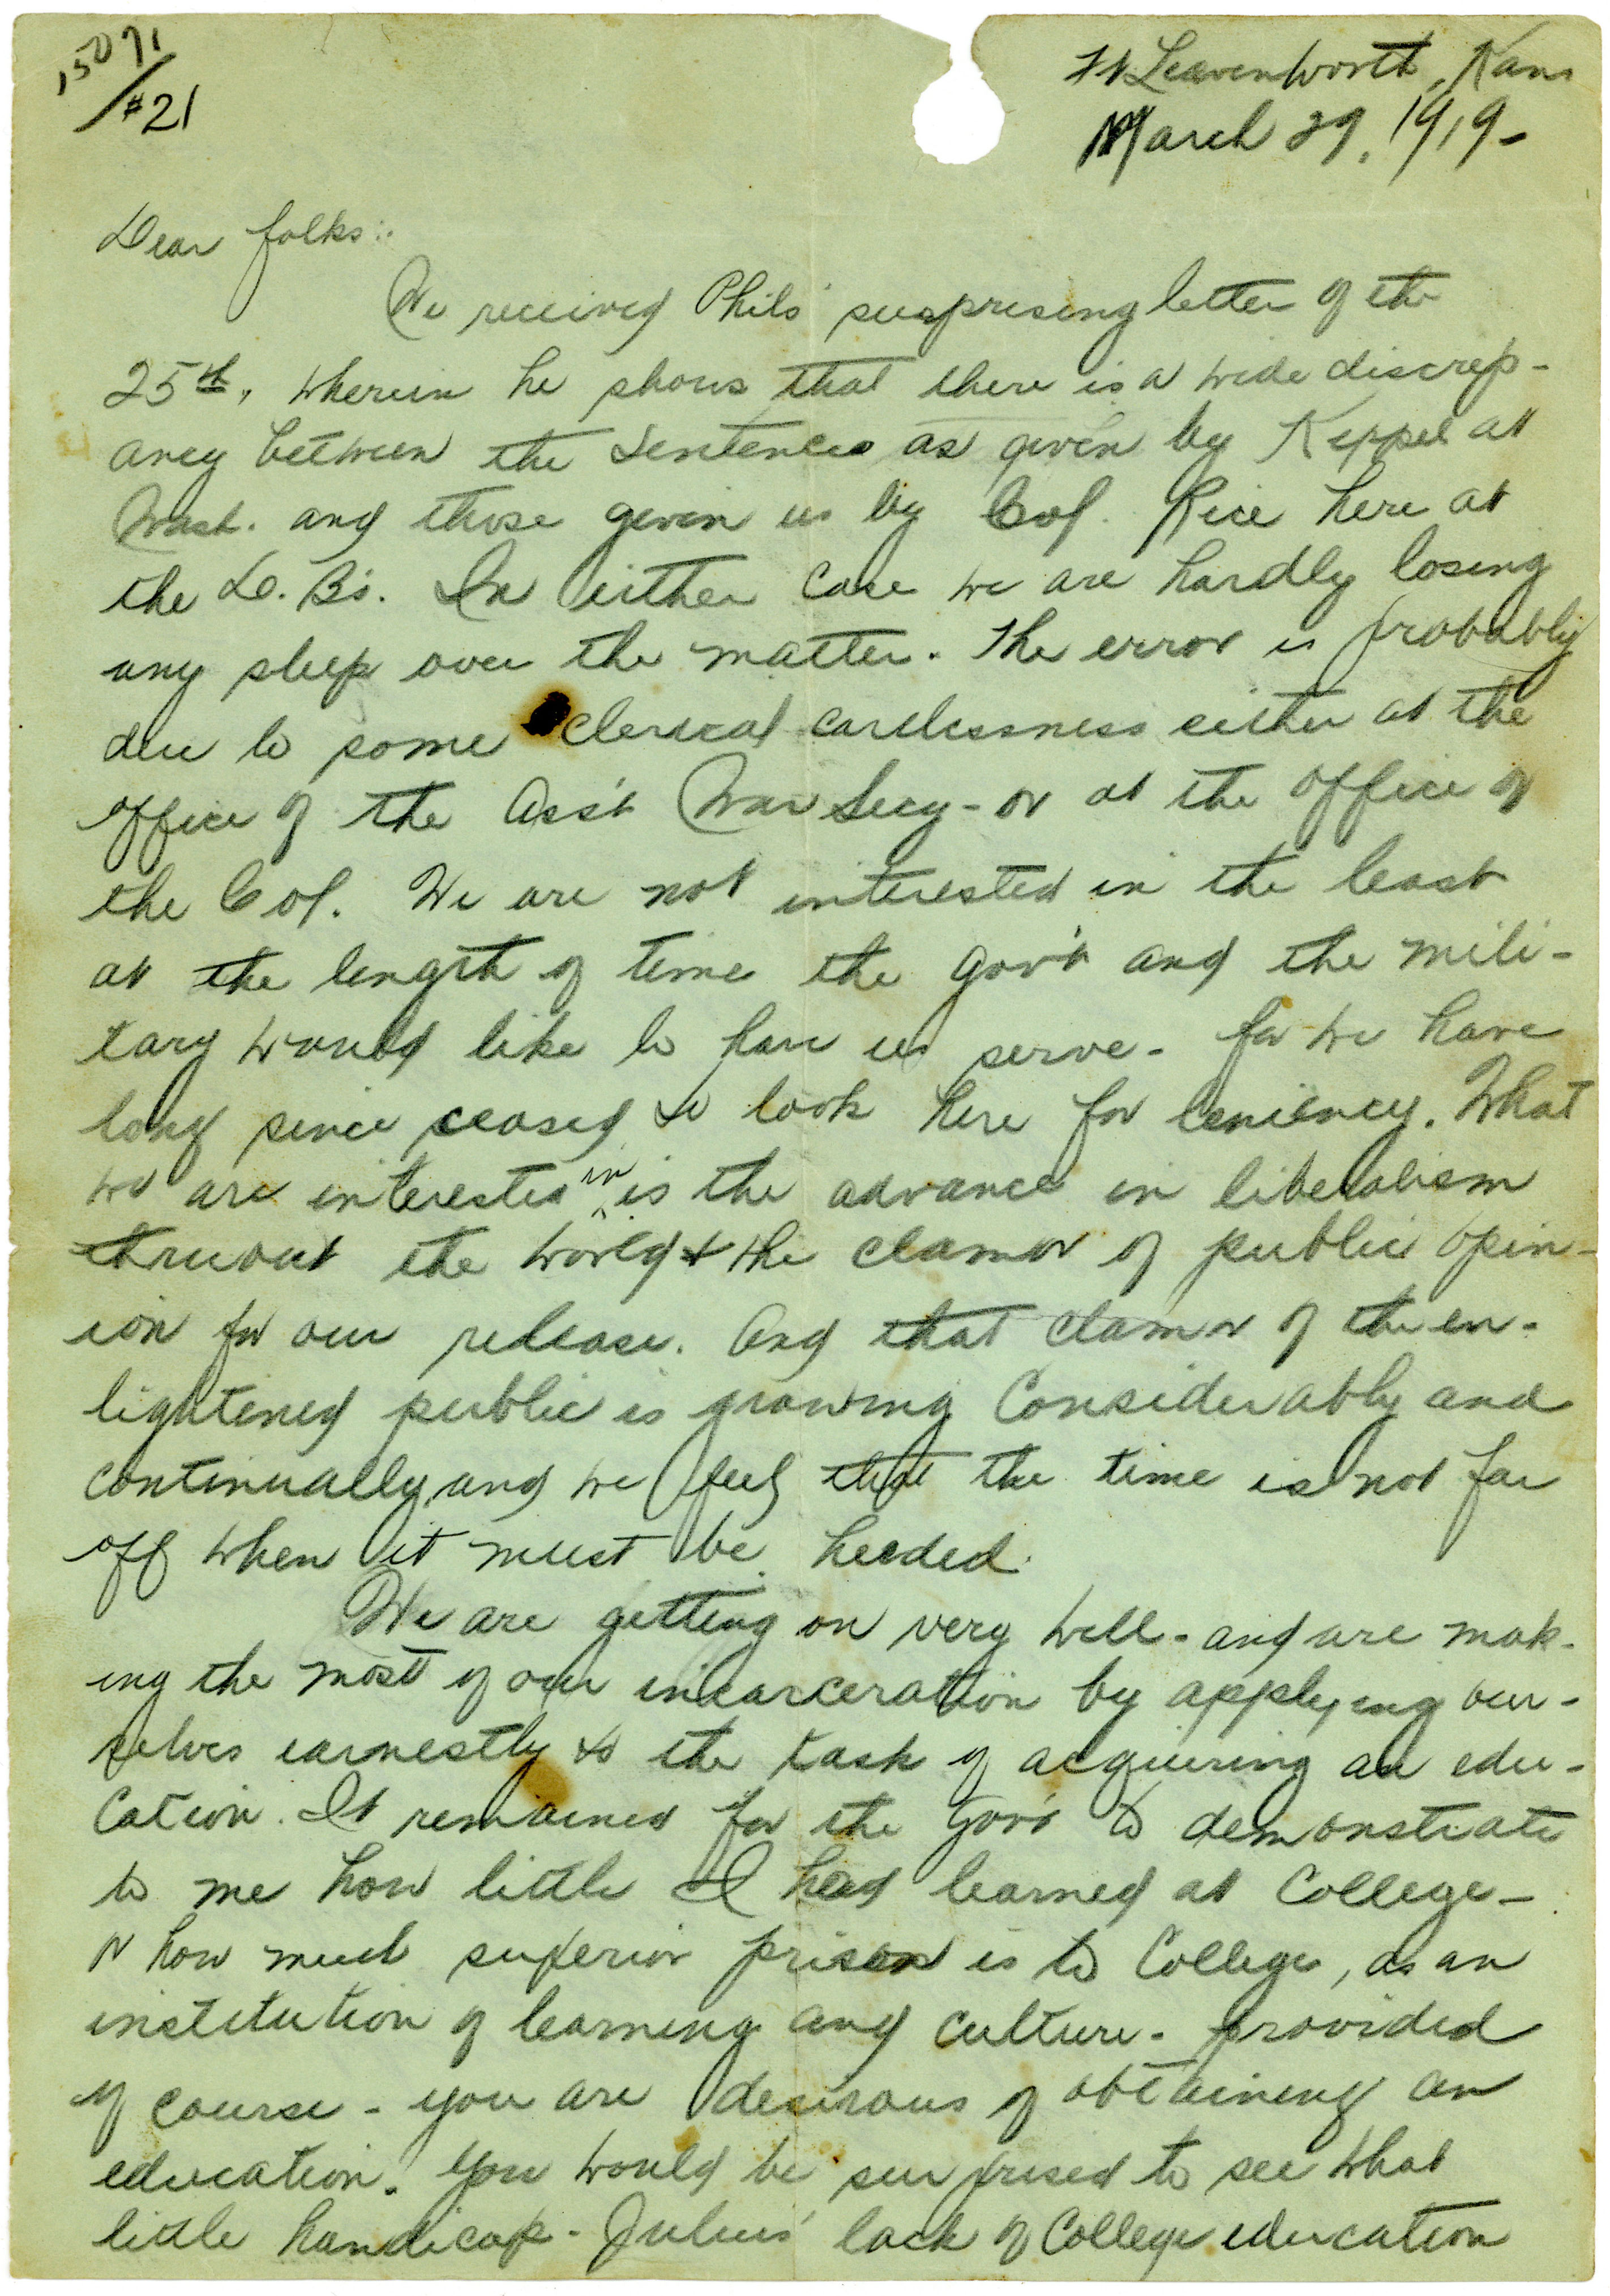 15071
/#21
Ft Leavenworth, Kans
March 29, 1919-
Dear folks:
We received Phils' surprising letter of the
25th, wherein he shows that there is a wide discrep-
ancy between the sentences as given by Keppel at
Wash. and those given us by Col. Rice here at
the D. B's. In either case we are hardly losing
any sleep over the matter. The error is probably
due to some clerical carelessness either at the
office of the Ass't War Secy - or at the office of
the Col. We are not interested in the least
at the length of time the Gov't and the mili-
tary would like to have us serve - for we have
long since ceased to look here for leniency. What
we are interested in is the advance in liberalism
thruout the world & the clamor of public opin-
ion for our release. And that clamor of the en-
lightened public is growing considerably and
continually, and we feel that the time is not far
off when it must be heeded.
We are getting on very well - and are mak-
ing the most of our incarceration by applying our-
selves earnestly to the task of acquiring an edu-
cation. It remained for the Gov't to demonstrate
to me how little I had learned at College -
& how much superior prison is to College, as an
institution of learning and culture - provided
of course - you are desirous of obtaining an
education. You would be surprised to see what
little handicap - Julius' lack of College education